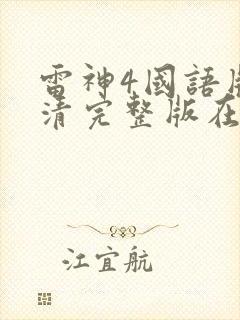 雷神4國語
清完整版在
江宜航